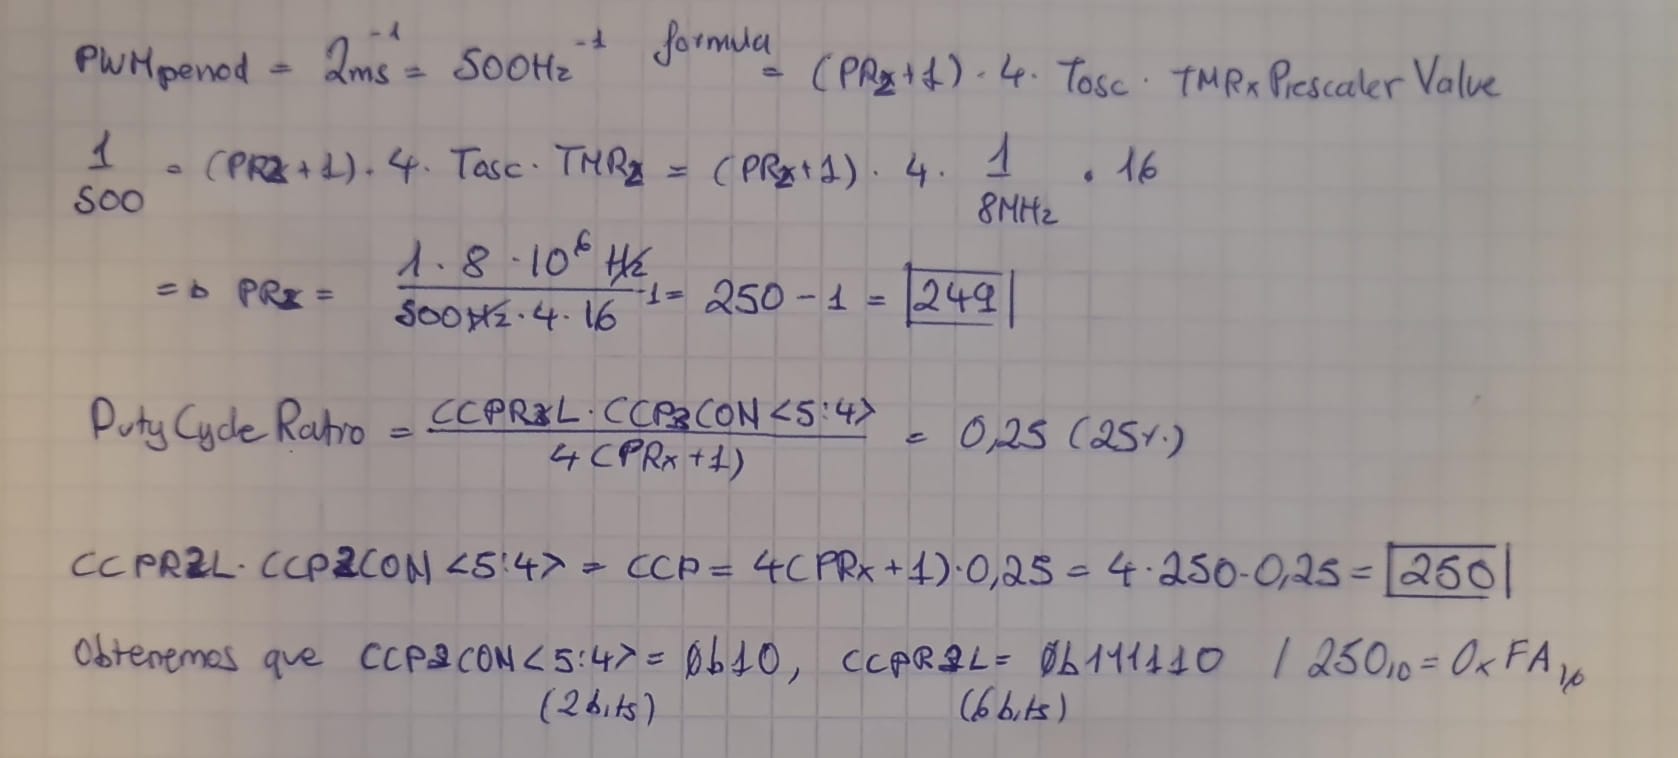 PWM period = 2ms⁻¹ = 500Hz⁻¹ formula = (PRx+1) · 4 · Tosc · TMRx Prescaler Value
1/500 = (PR2+1) · 4 · Tosc · TMR2 = (PRx+1) · 4 · 1/8MHz · 16
=> PRx = (1 · 8 · 10⁶ Hz)/(500Hz · 4 · 16) -1 = 250 - 1 = 249
Duty Cycle Ratio = (CCPR3L · CCP3CON <5:4>)/(4(PRx+1)) = 0,25 (25%)
CCPR2L · CCP2CON <5:4> = CCP = 4(PRx+1) · 0,25 = 4 · 250 · 0,25 = 250
Obtenemos que CCP2CON <5:4> = 0b10, CCPR2L = 0b111110 / 250₁₀ = 0xFA₁₆
(2bits) (6bits)